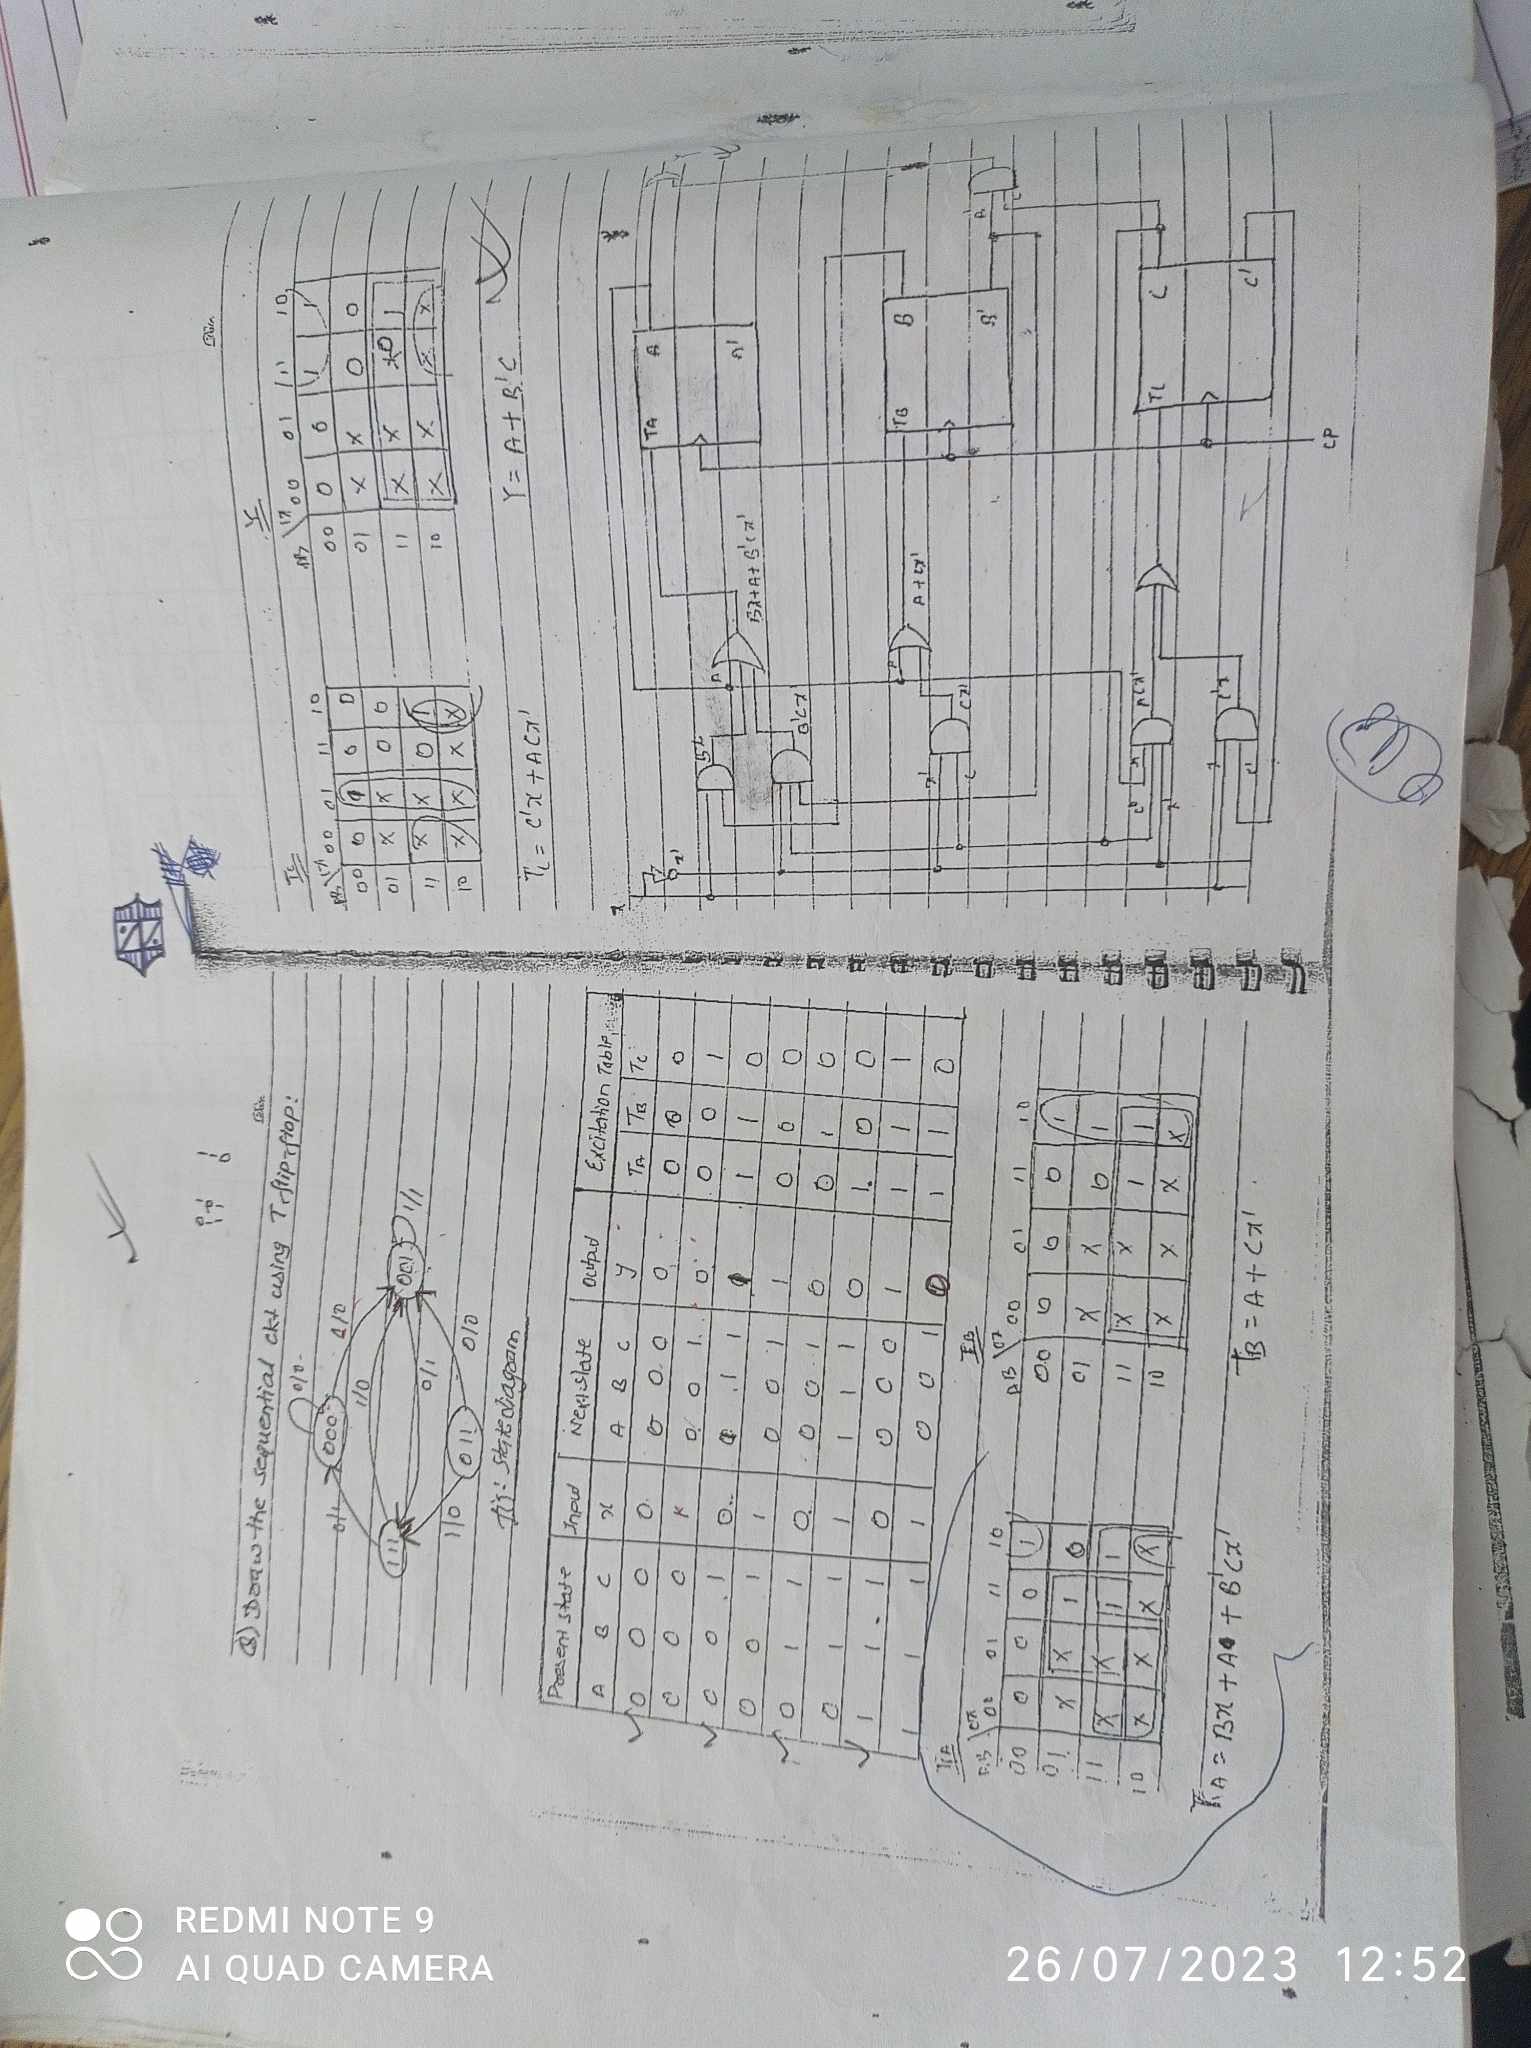 Q) Draw the sequential ckt using T-flip-flop:
0/0
000
1/0
0/1
1/0
111
001
1/1
0/1
1/0
011
0/0
fig: state diagram
Present state Input Next state Output Excitation Table
A B C x A B C y TA TB TC
0 0 0 0 0 0 0 0 0 0 0
0 0 0 1 0 0 1 0 0 0 1
0 0 1 0 1 1 1 1 1 1 0
0 0 1 1 0 0 1 1 0 0 0
0 1 1 0 0 0 1 0 0 1 0
0 1 1 1 1 1 1 0 1 0 0
1 1 1 0 0 0 0 1 1 1 1
1 1 1 1 0 0 1 0 1 1 0
TA
AB \ Cx 00 01 11 10
00 0 0 0 1
01 x x 1 0
11 x x 1 1
10 x x x x
TB
AB \ Cx 00 01 11 10
00 0 0 0 1
01 x x 0 1
11 x x 1 1
10 x x x x
TA = Bx + A + B'Cx'
TB = A + Cx'
TC
AB \ Cx 00 01 11 10
00 0 1 0 0
01 x x 0 0
11 x x 0 1
10 x x x x
Y
AB \ Cx 00 01 11 10
00 0 0 1 1
01 x x 0 0
11 x x 0 1
10 x x x x
TC = C'x + ACx'
Y = A + B'C
x
x'
Bx
A
B'Cx
Bx+A+B'Cx'
TA A
A'
Y
x'
C
Cx'
A+Cx'
TB B
B'
B'
C
ACx'
C'x
TC C
C'
CP
REDMI NOTE 9
AI QUAD CAMERA
26/07/2023 12:52